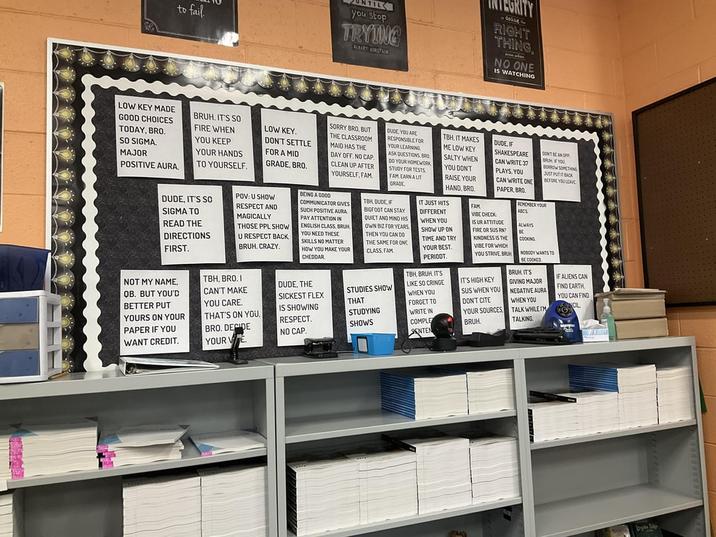 to fail.
UNTIL
you stop
TRYING
ALBERT EINSTEIN
INTEGRITY
DOING
RIGHT
THING,
NO ONE
IS WATCHING
LOW KEY MADE
GOOD CHOICES
TODAY, BRO.
SO SIGMA.
MAJOR
POSITIVE AURA.
BRUH. IT'S SO
FIRE WHEN
YOU KEEP
YOUR HANDS
TO YOURSELF.
LOW KEY.
DON'T SETTLE
FOR A MID
GRADE, BRO.
SORRY BRO, BUT
THE CLASSROOM
MAID HAS THE
DAY OFF. NO CAP.
CLEAN UP AFTER
YOURSELF, FAM.
DUDE, YOU ARE
RESPONSIBLE FOR
YOUR LEARNING.
ASK QUESTIONS, BRO.
DO YOUR HOMEWORK.
STUDY FOR TESTS.
FAM. EARN A LIT
GRADE.
TBH, IT MAKES
ME LOW KEY
SALTY WHEN
YOU DON'T
RAISE YOUR
HAND, BRO.
DUDE, IF
SHAKESPEARE
CAN WRITE 37
PLAYS, YOU
CAN WRITE ONE
PAPER, BRO.
DON'T BE AN OPP,
BRUH. IF YOU
BORROW SOMETHING
JUST PUT IT BACK
BEFORE YOU LEAVE.
DUDE, IT'S SO
SIGMA TO
READ THE
DIRECTIONS
FIRST.
POV: U SHOW
RESPECT AND
MAGICALLY
THOSE PPL SHOW
U RESPECT BACK.
BRUH. CRAZY.
BEING A GOOD
COMMUNICATOR GIVES
SUCH POSITIVE AURA.
PAY ATTENTION IN
ENGLISH CLASS, BRUH.
YOU NEED THESE
SKILLS NO MATTER
HOW YOU MAKE YOUR
CHEDDAR.
TBH, DUDE, IF
BIGFOOT CAN STAY
QUIET AND MIND HIS
OWN BIZ FOR YEARS,
THEN YOU CAN DO
THE SAME FOR ONE
CLASS, FAM.
IT JUST HITS
DIFFERENT
WHEN YOU
SHOW UP ON
TIME AND TRY
YOUR BEST.
PERIODT.
FAM.
VIBE CHECK:
IS UR ATTITUDE
FIRE OR SUS RN?
KINDNESS IS THE
VIBE FOR WHICH
YOU STRIVE, BRUH.
REMEMBER YOUR
ABCS.
ALWAYS
BE
COOKING.
NOBODY WANTS TO
BE COOKED.
NOT MY NAME,
QB. BUT YOU'D
BETTER PUT
YOURS ON YOUR
PAPER IF YOU
WANT CREDIT.
TBH, BRO, I
CAN'T MAKE
YOU CARE.
THAT'S ON YOU,
BRO. DECIDE
YOUR
DUDE, THE
SICKEST FLEX
IS SHOWING
RESPECT.
NO CAP.
STUDIES SHOW
THAT
STUDYING
SHOWS
TBH, BRUH, IT'S
LIKE SO CRINGE
WHEN YOU
FORGET TO
WRITE IN
COMPLE
SENTEN
IT'S HIGH KEY
SUS WHEN YOU
DON'T CITE
YOUR SOURCES,
BRUH.
BRUH, IT'S
GIVING MAJOR
NEGATIVE AURA
WHEN YOU
TALK WHILE I'M
TALKING.
IF ALIENS CAN
FIND EARTH,
YOU CAN FIND